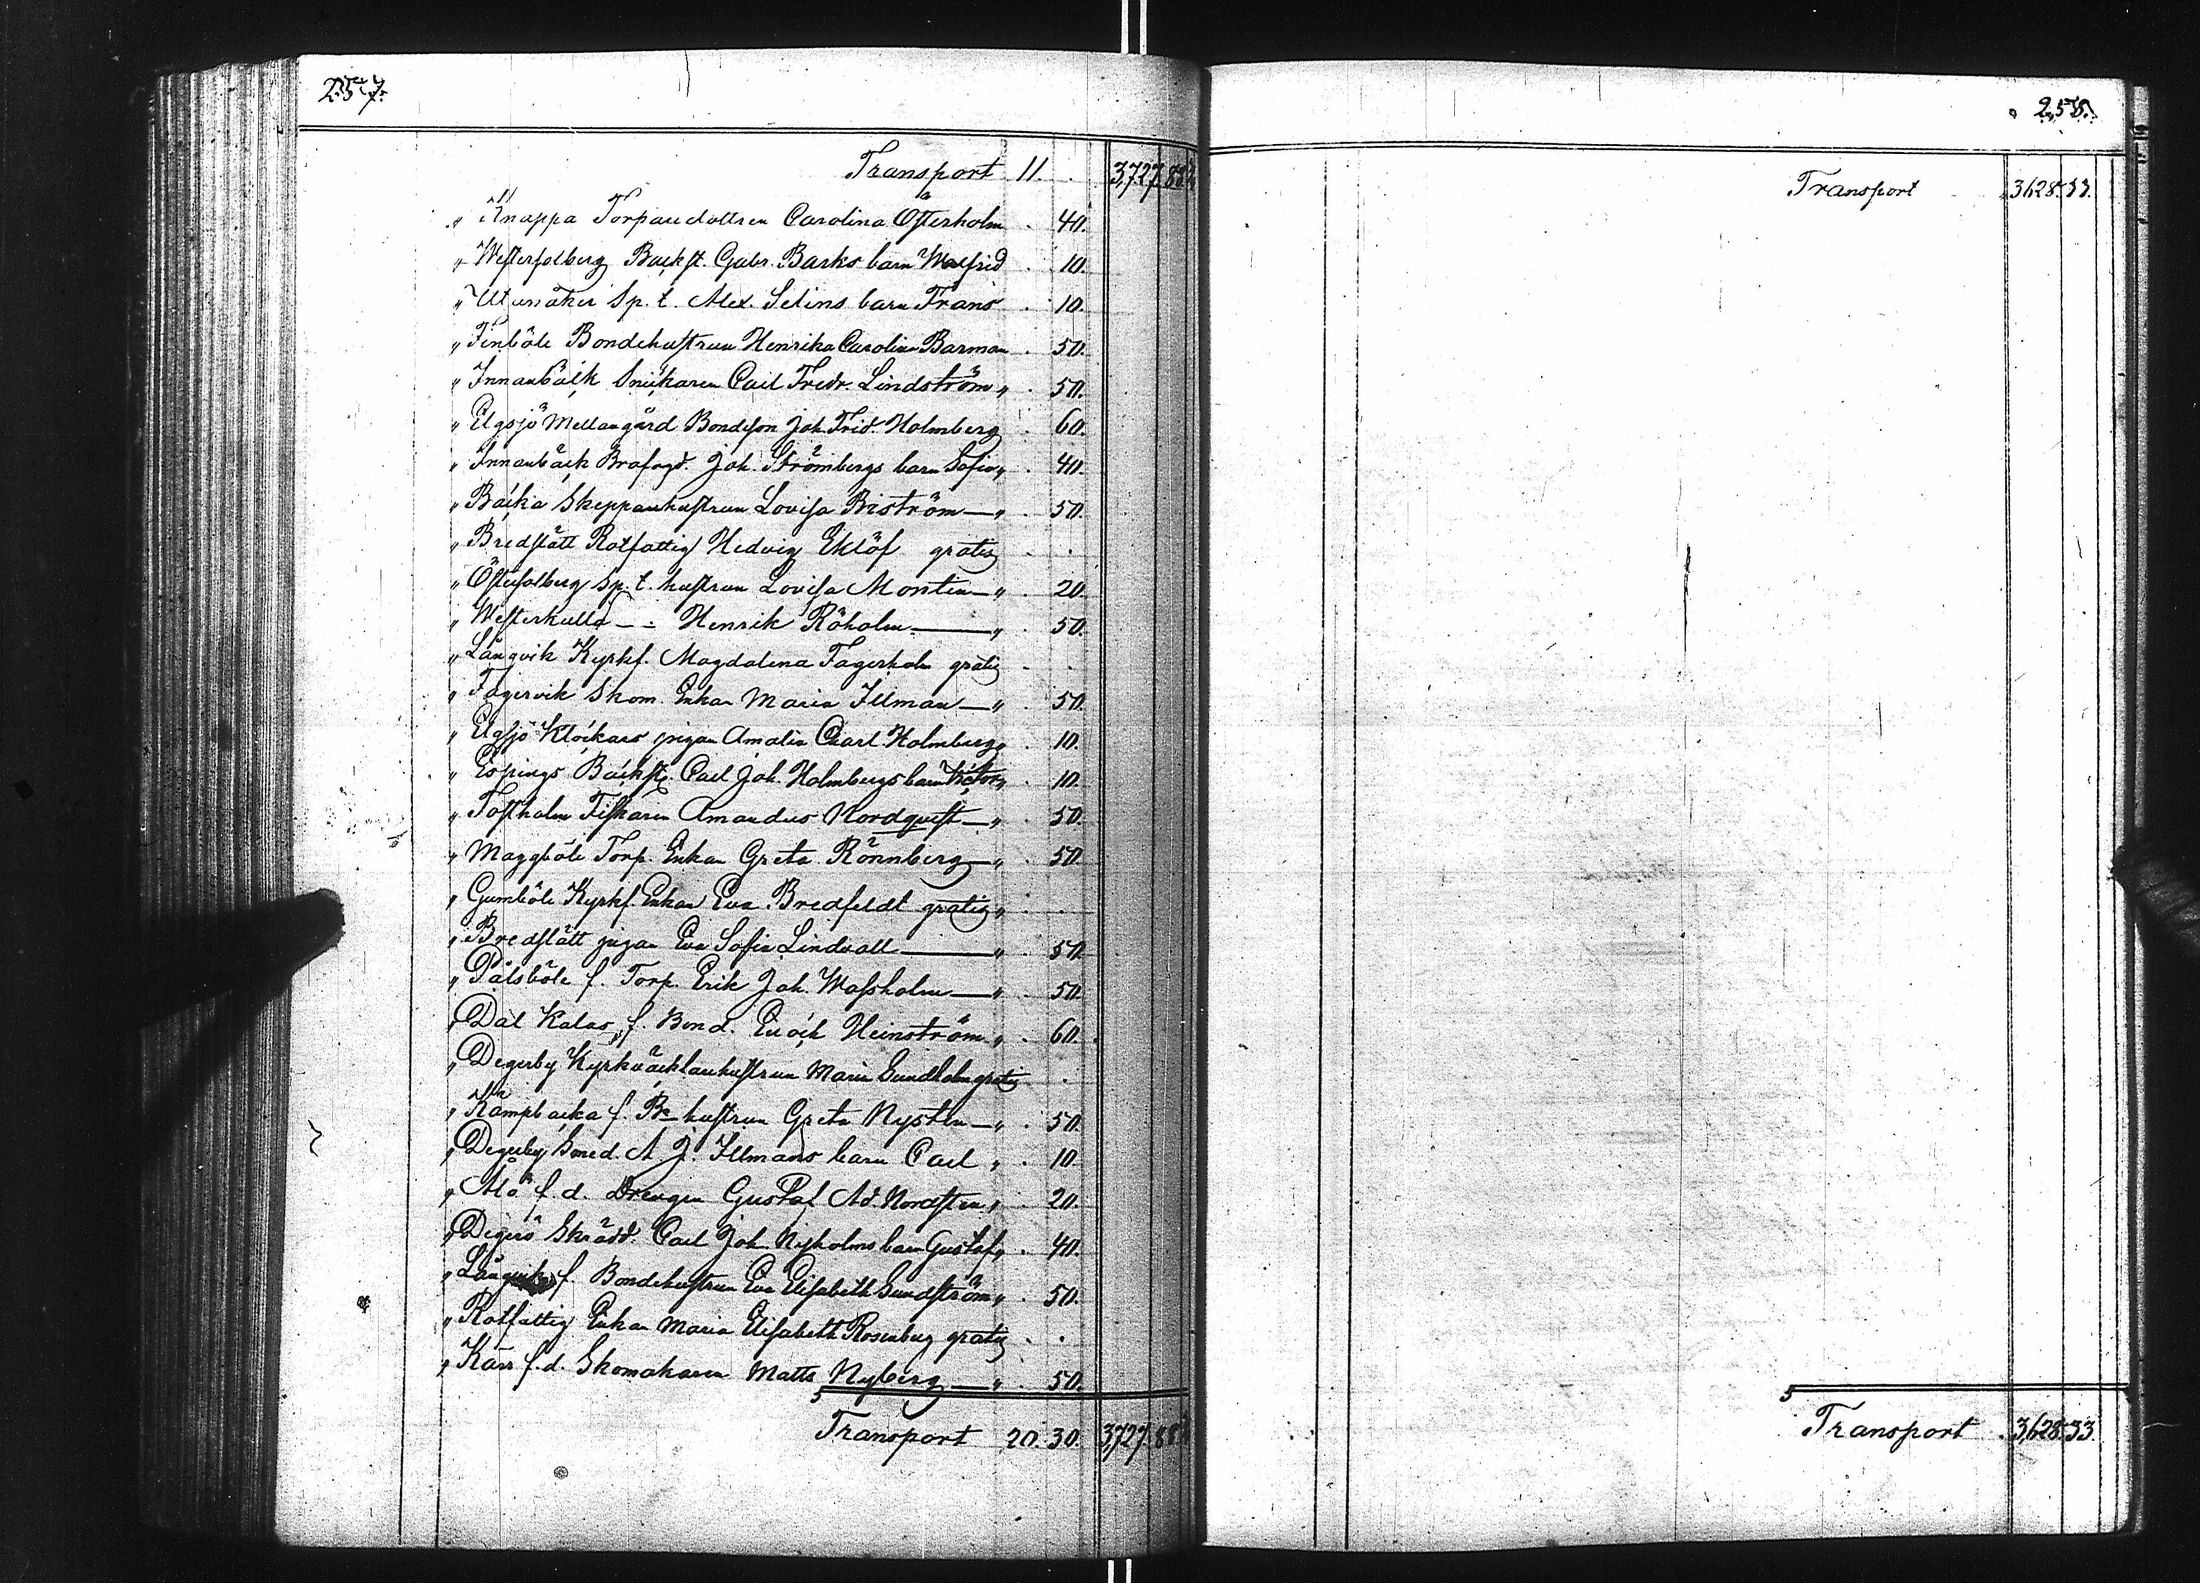 257.
Transport 11. . 3,727.88
„ Knappa Torparedottren Carolina Österholm . 40.
„ Westersolberg Backst. Gabr. Barks barn Walfrid . 10.
„ Utunåker Sp. t. Alex. Selins barn Frans . 10.
„ Finböle Bondehustrun Henrika Carolina Barman . 50.
„ Innanbäck Snickaren Carl Fredr. Lindström „ . 50.
„ Elgsjö Mellangård Bondeson Joh. Frid. Holmberg . 60.
„ Innanbäck Brofogd. Joh. Strömbergs barn Sofia „ . 40.
„ Backa Skepparehustrun Lovisa Biström — „ . 50.
„ Bredslätt Rotfattig Hedvig Eklöf gratis . .
„ Östersolberg Sp. t. hustrun Lovisa Montin — „ . 20.
„ Westerkulla — „ — Henrik Röholm — „ . 50.
„ Långvik Kyrkf. Magdalena Fagerholm gratis . .
„ Fagervik Skom. Enkan Maria Illman — „ . 50.
„ Elgsjö Klockars pigan Amalia Charl. Holmberg „ . 10.
„ Espings Backst. Carl Joh. Holmbergs barn Victor „ . 10.
„ Tostholm Fiskaren Amandus Nordqvist — „ . 50.
„ Maggböle Torp. Enkan Greta Rönnberg — „ . 50.
„ Gumböle Kyrkf. Enkan Eva Bredfeldt gratis „ . .
„ Bredslätt pigan Eva Sofia Lindvall — „ . 50.
„ Pålsböle f. Torp. Erik Joh. Wassholm — „ . 50.
„ Dal Kalas f. Bond. Enock Heinström „ . 60.
„ Degerby Kyrkväcktarehustrun Maria Sundholm gratis .
„ Kämpbacka f. Be hustrun Greta Nystén — „ . 50.
„ Degerby Smed. A. J. Illmans barn Carl „ . 10.
„ Alö f. d. Drengen Gustaf Ad. Nordsten „ . 20.
„ Degerö Skrädd. Carl Joh. Nyholms barn Gustaf „ . 40.
„ Långvik f. Bondehustrun Eva Elisabeth Sundström „ . 50.
„ Rotfattig Enkan Maria Elisabeth Rosenberg gratis . .
„ Kärr f. d. Skomakaren Matts Nyberg — „ . 50.
Transport 20. 30. 3,727.88
258.
Transport 3,628.33.
Transport 3,628.33.